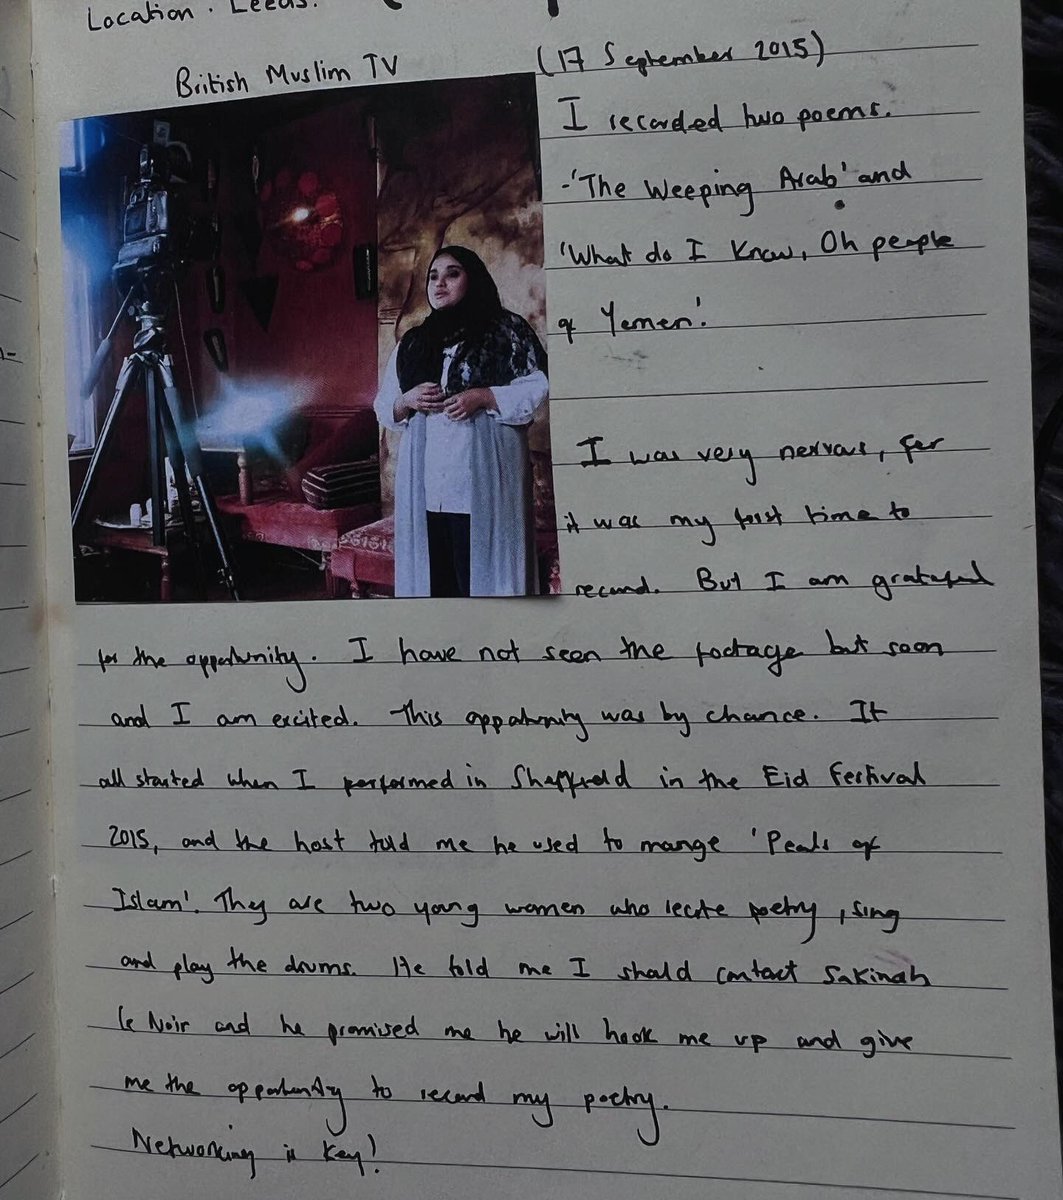 Location. Leeds.
British Muslim TV
(17 September 2015)
I recorded two poems.
-'The Weeping Arab' and
'What do I Know, Oh people
of Yemen'.
I was very nervous, for
it was my first time to
record. But I am grateful
for the opportunity. I have not seen the footage but soon
and I am excited. This opportunity was by chance. It
all started when I performed in Sheffield in the Eid Festival
2015, and the host told me he used to mange 'Pearls of
Islam'. They are two young women who recite poetry, sing
and play the drums. He told me I should contact Sakinah
le Noir and he promised me he will hook me up and give
me the opportunity to record my poetry.
Networking is key!